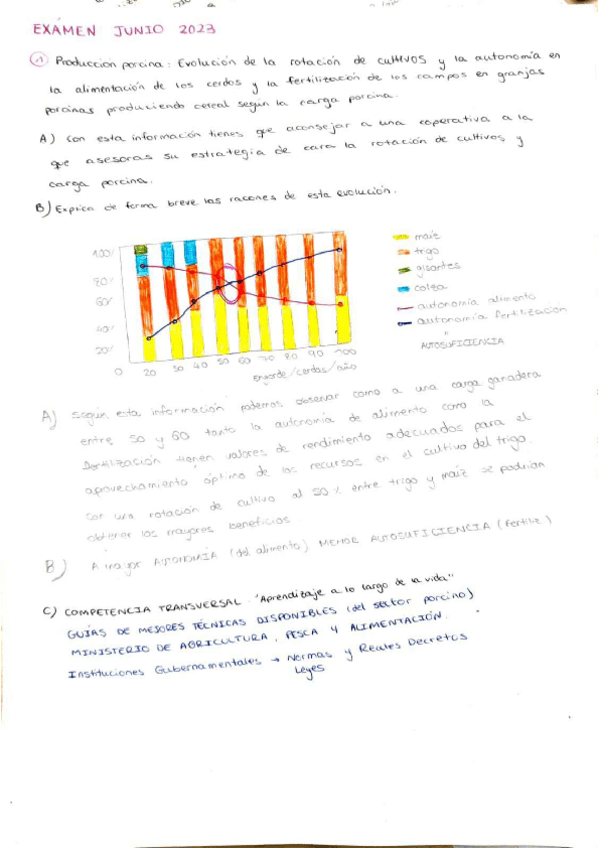 EXÁMEN JUNIO 2023
1 Produccion porcina: Evolución de la rotación de cultivos y la autonomía en
la alimentación de los cerdos y la fertilización de los campos en granjas
porcinas produciendo cereal según la carga porcina.
A) Con esta información tienes que aconsejar a una coperativa a la
que asesoras su estrategia de cara la rotación de cultivos y
carga porcina.
B) Explica de forma breve las razones de esta evolución.
100%
80%
60%
40%
20%
0 20 30 40 50 60 70 80 90 100
Engorde/cerdas/año
maiz
trigo
guisantes
colza
autonomía alimento
autonomía fertilización
"
AUTOSUFICIENCIA
A) Según esta información podemos observar como a una carga ganadera
entre 50 y 60 tanto la autonomía de alimento como la
fertilización tienen valores de rendimiento adecuados para el
aprovechamiento óptimo de los recursos en el cultivo del trigo.
Con una rotación de cultivo al 50% entre trigo y maíz se podrían
obtener los mayores beneficios.
B) A mayor AUTONOMÍA (del alimento) MENOR AUTOSUFICIENCIA (fertiliz)
C) COMPETENCIA TRANSVERSAL "Aprendizaje a lo largo de la vida"
GUÍAS DE MEJORES TÉCNICAS DISPONIBLES (del sector porcino)
MINISTERIO DE AGRICULTURA, PESCA Y ALIMENTACIÓN.
Instituciones Gubernamentales → Normas y Reales Decretos
Leyes